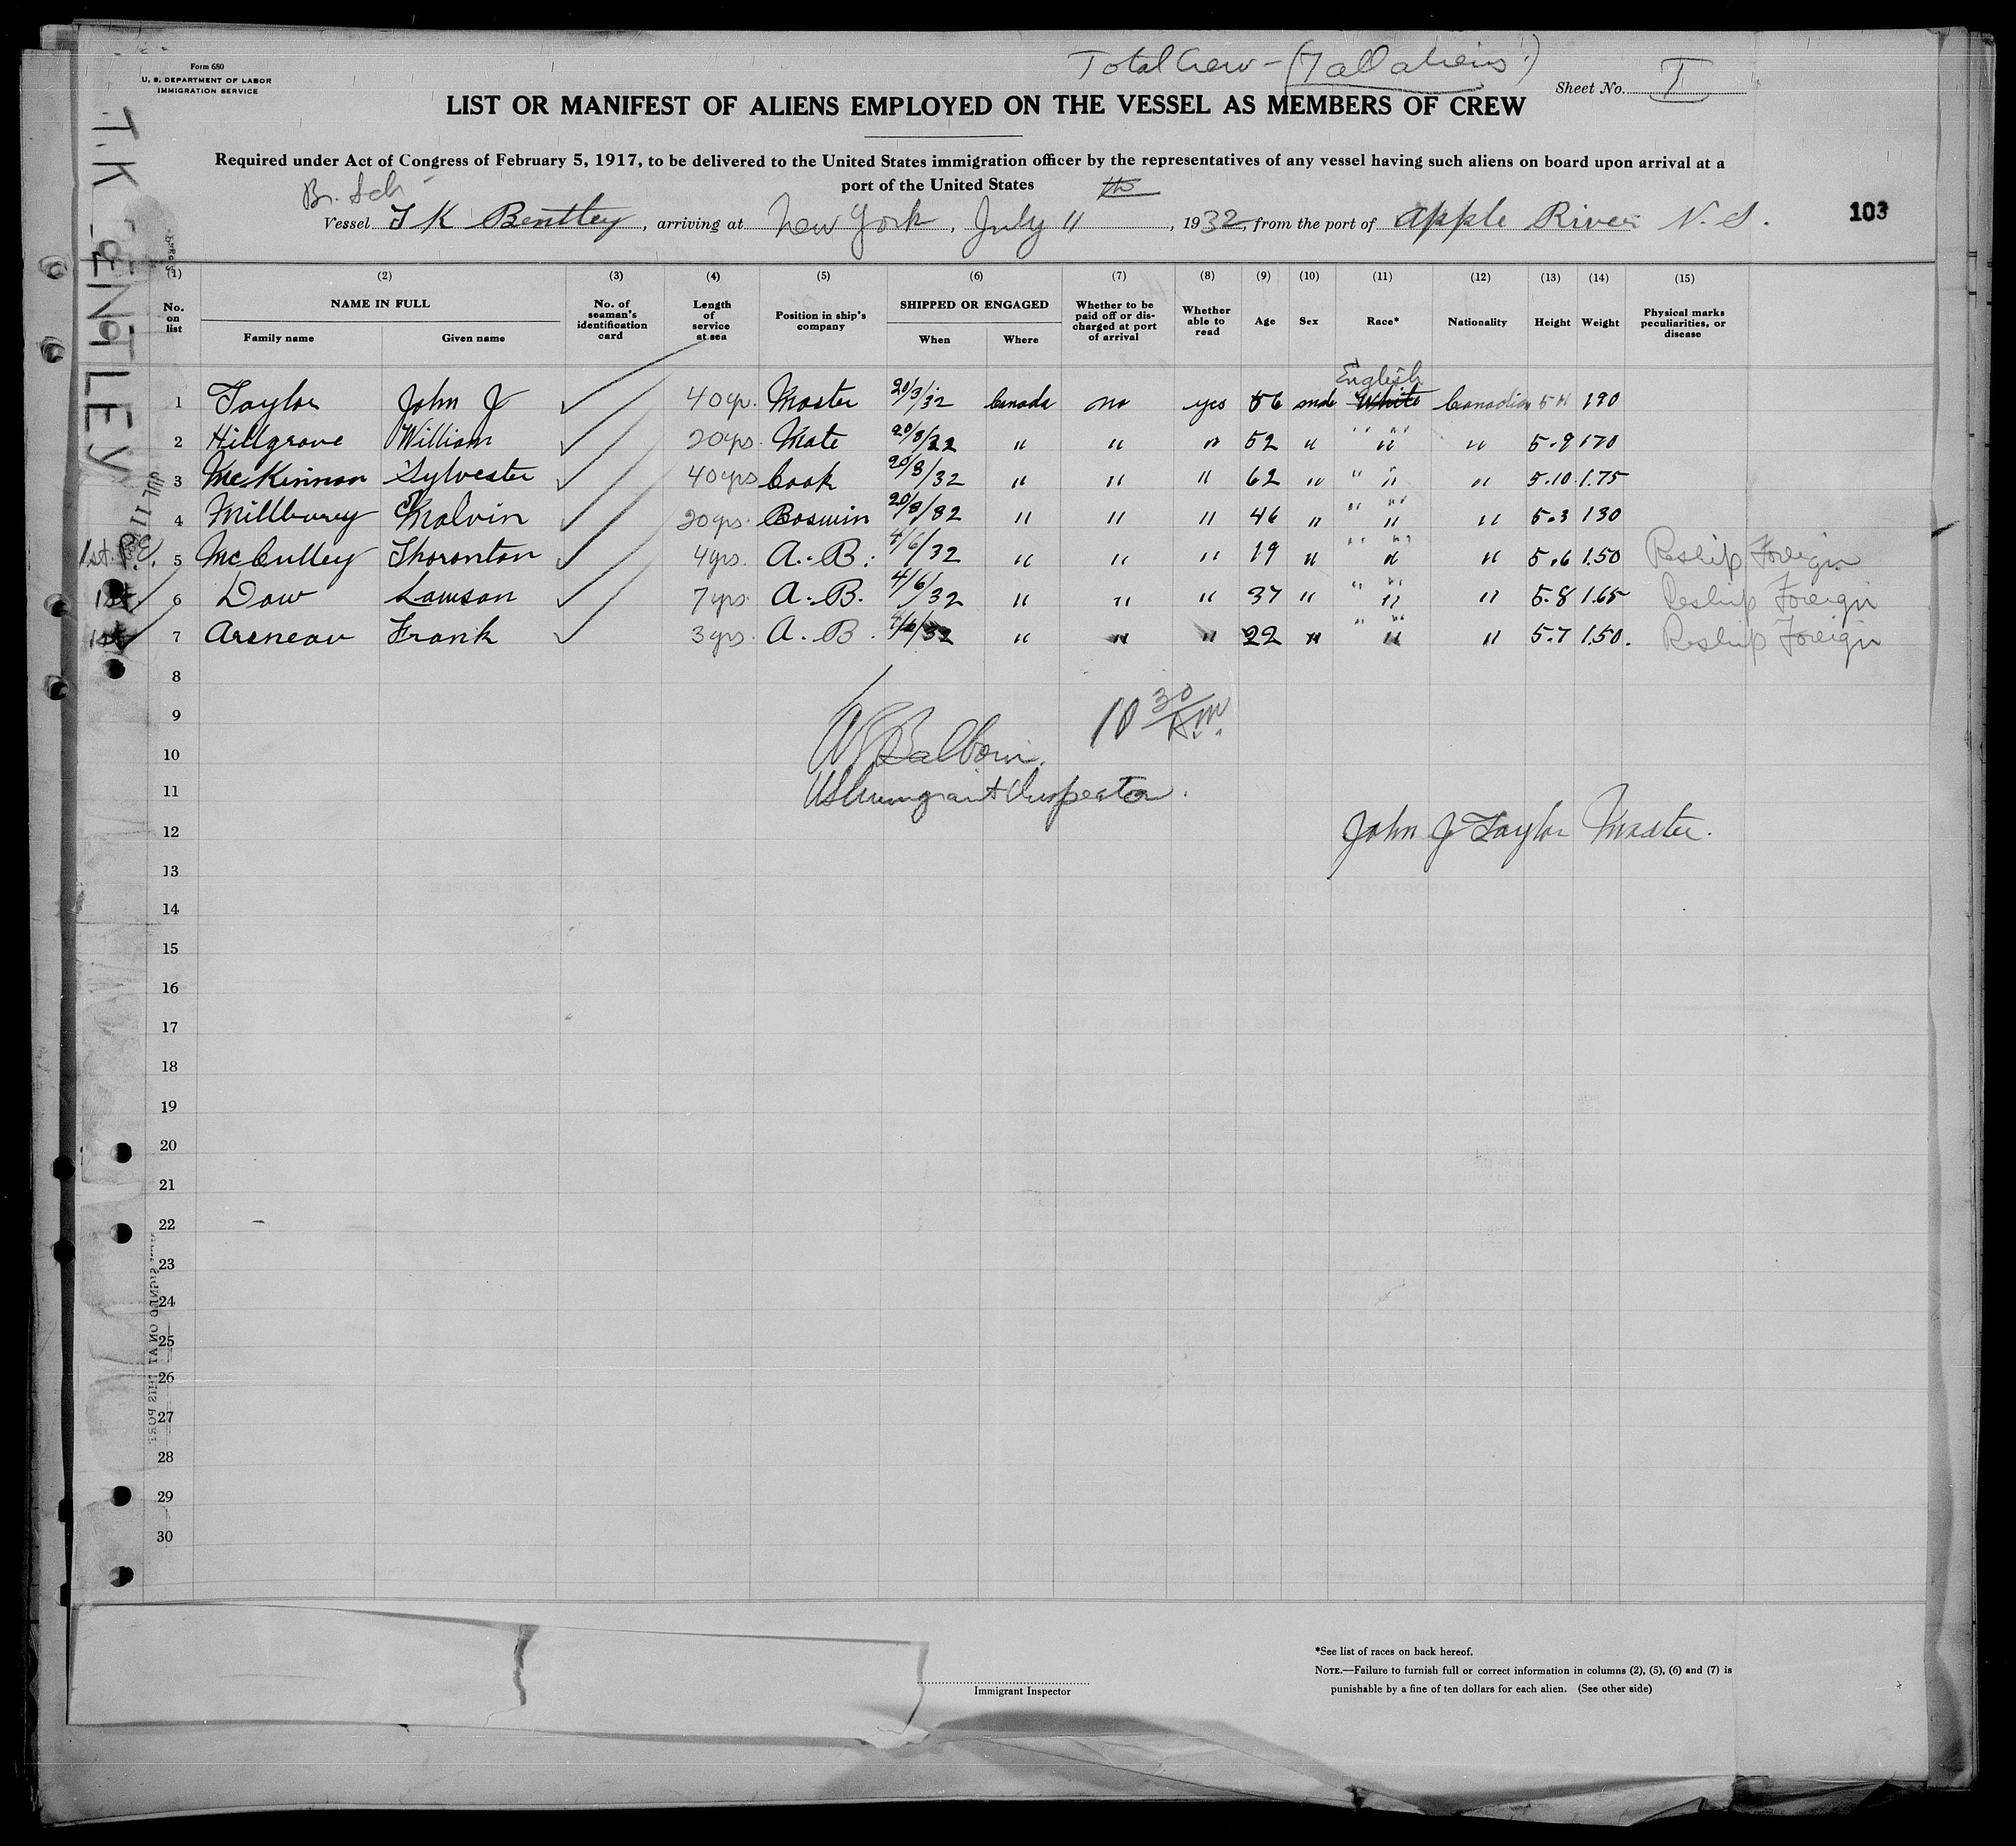 Form 680
U. S. DEPARTMENT OF LABOR
IMMIGRATION SERVICE
Total Crew - (7 all aliens)
Sheet No. I
LIST OR MANIFEST OF ALIENS EMPLOYED ON THE VESSEL AS MEMBERS OF CREW
Required under Act of Congress of February 5, 1917, to be delivered to the United States immigration officer by the representatives of any vessel having such aliens on board upon arrival at a
port of the United States
Br. Sch
Vessel T K Bentley, arriving at New York, July 11 th, 1932, from the port of Apple River N. S.
103
T.K. BENTLEY
JUL 11
(1) (2) (3) (4) (5) (6) (7) (8) (9) (10) (11) (12) (13) (14) (15)
No. on list
NAME IN FULL
Family name Given name
No. of seaman's identification card
Length of service at sea
Position in ship's company
SHIPPED OR ENGAGED
When Where
Whether to be paid off or discharged at port of arrival
Whether able to read
Age
Sex
Race*
Nationality
Height
Weight
Physical marks peculiarities, or disease
English
1 Taylor John J ✓ 40 yr. Master 20/3/32 Canada no yes 56 male White Canadian 190
2 Hillgrove William ✓ 20 yrs. Mate 20/3/32 " " " 52 " " " 5.9 170
3 McKinnon Sylvester ✓ 40 yrs Cook 20/3/32 " " " 62 " " " 5.10 1.75
4 Millburry Malvin ✓ 20 yrs. Boswin 20/3/32 " " " 46 " " " 5.3 130
1st. 5 McCulley Thornton ✓ 4 yrs. A. B. 4/6/32 " " " 19 " " " 5.6 1.50 Reship Foreign
1st 6 Dow Lawson ✓ 7 yrs. A. B. 4/6/32 " " " 37 " " " 5.8 1.65 Reship Foreign
1st 7 Areneau Frank ✓ 3 yrs. A. B. 4/6/32 " " " 22 " " " 5.7 1.50. Reship Foreign
8
9
10 30 A.M.
10
11
US Immigrant Inspector.
12
John J Taylor Master.
13
14
15
16
17
18
19
20
21
22
23
24
25
26
27
28
29
30
Immigrant Inspector
*See list of races on back hereof.
NOTE.—Failure to furnish full or correct information in columns (2), (5), (6) and (7) is
punishable by a fine of ten dollars for each alien. (See other side)